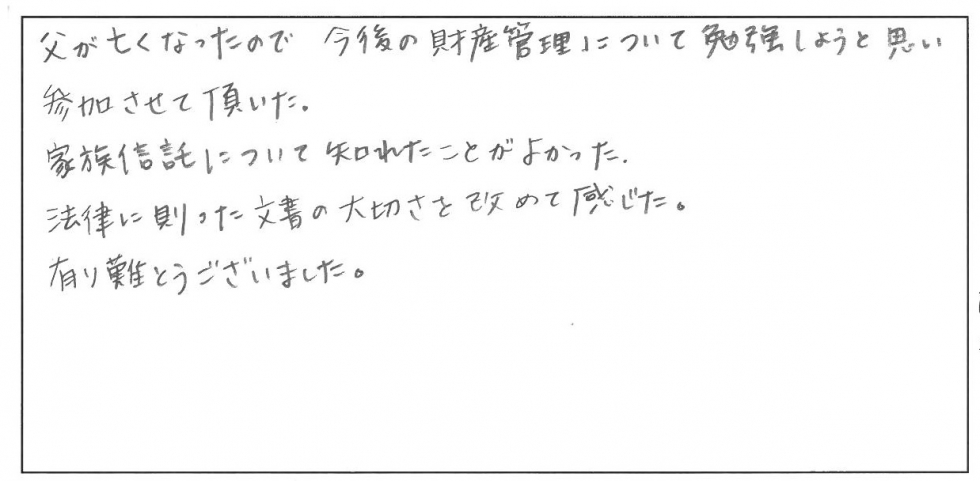 父が亡くなったので 今後の財産管理について勉強しようと思い
参加させて頂いた。
家族信託について知れたことがよかった.
法律に則った文書の大切さを改めて感じた。
有り難とうございました。